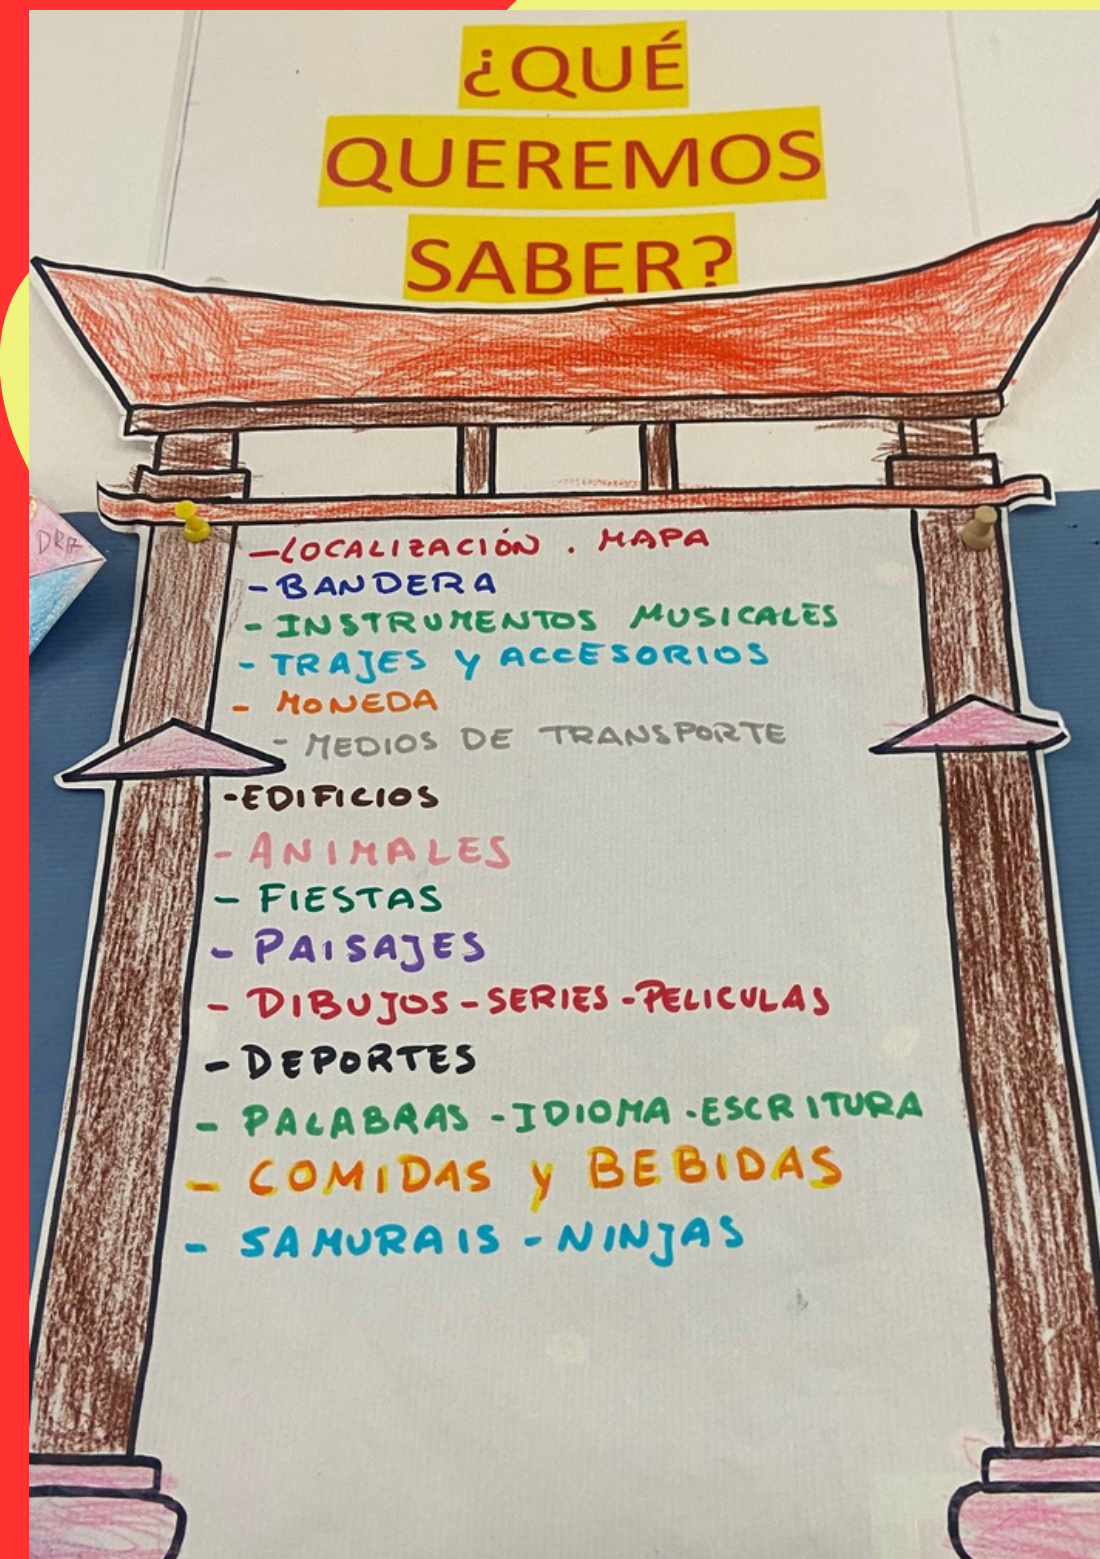 ¿QUÉ
QUEREMOS
SABER?
-LOCALIZACIÓN . MAPA
-BANDERA
- INSTRUMENTOS MUSICALES
- TRAJES Y ACCESORIOS
- MONEDA
- MEDIOS DE TRANSPORTE
-EDIFICIOS
- ANIMALES
- FIESTAS
- PAISAJES
- DIBUJOS-SERIES-PELICULAS
- DEPORTES
- PALABRAS -IDIOMA -ESCRITURA
- COMIDAS y BEBIDAS
- SAMURAIS - NINJAS